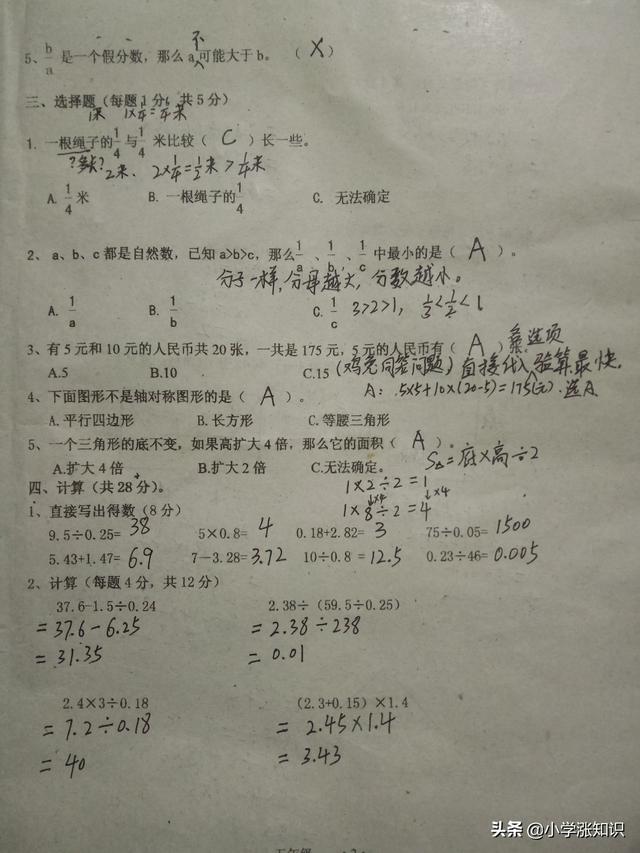 5、b/a 是一个假分数，那么a不可能大于b。（ × ）
三、选择题（每题1分，共5分）
1米 1×1/4=1/4米
1. 一根绳子的1/4 与1/4 米比较（ C ）长一些。
?多长? 2米. 2×1/4=1/2米>1/4米
A. 1/4米 B. 一根绳子的1/4 C. 无法确定
2、a、b、c都是自然数，已知a>b>c，那么1/a、1/b、1/c中最小的是（ A ）。
分子一样，分母越大，分数越小。
A. 1/a B. 1/b C. 1/c 3>2>1, 1/3<1/2<1
3、有5元和10元的人民币共20张，一共是175元，5元的人民币有（ A ）张 选项
A.5 B.10 C.15 (鸡兔同笼问题) 直接代入验算最快.
A: 5×5+10×(20-5)=175(元).选A
4、下面图形不是轴对称图形的是（ A ）。
A.平行四边形 B.长方形 C.等腰三角形
5、一个三角形的底不变，如果高扩大4倍，那么它的面积（ A ）。
S△=底×高÷2
A.扩大4倍 B.扩大2倍 C.无法确定。
1×2÷2=1
四、计算（共28分）。
↓×4 ↓×4
1×8÷2=4
1、直接写出得数（8分）
9.5÷0.25= 38 5×0.8= 4 0.18+2.82= 3 75÷0.05= 1500
5.43+1.47= 6.9 7－3.28= 3.72 10÷0.8 = 12.5 0.23÷46= 0.005
2、计算（每题4分，共12分）
37.6-1.5÷0.24 2.38÷（59.5÷0.25）
=37.6-6.25 =2.38÷238
=31.35 =0.01
2.4×3÷0.18 （2.3+0.15）×1.4
=7.2÷0.18 = 2.45×1.4
=40 = 3.43
头条 @小学涨知识